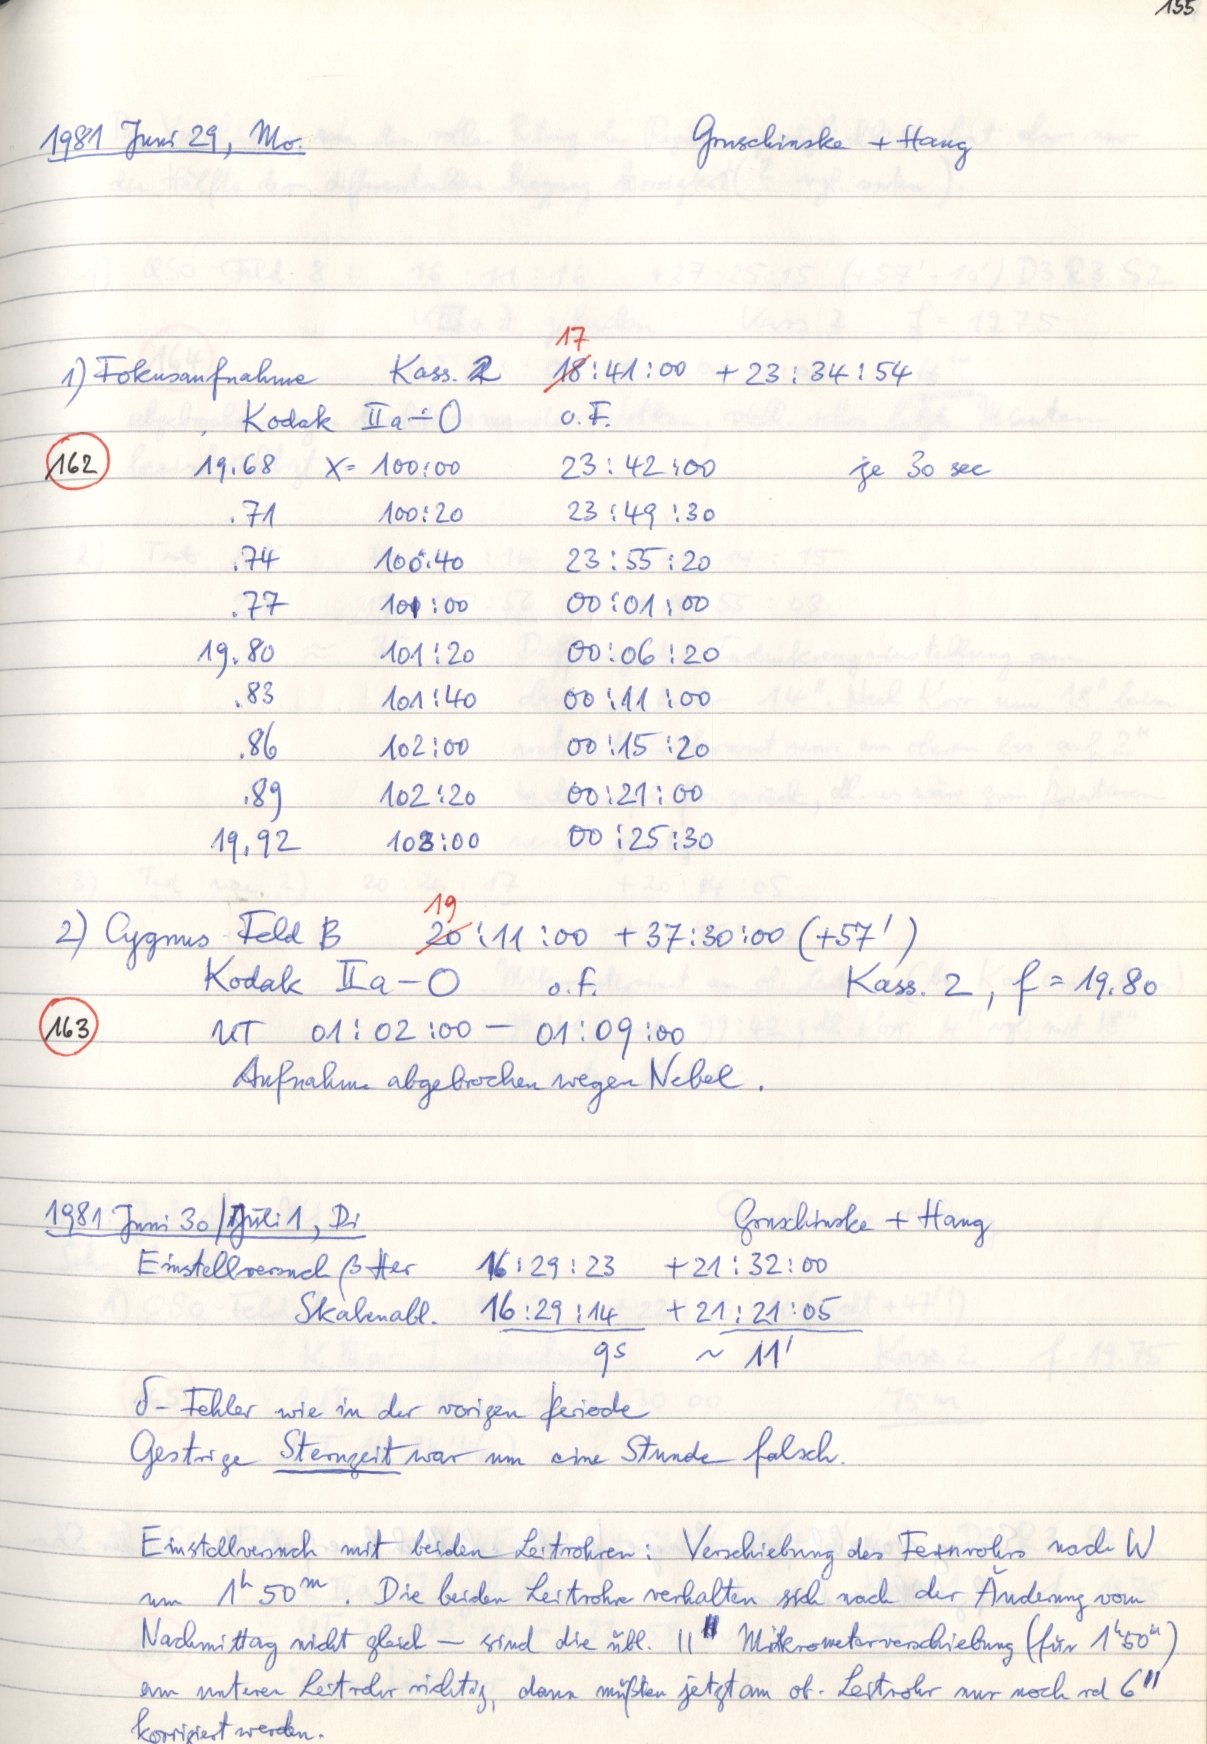 155
1981 Juni 29, Mo. Gruschinske + Haug
17
1) Fokusaufnahme Kass. 2 18:41:00 + 23:34:54
Kodak IIa-O o.F.
162 19.68 X= 100:00 23:42:00 je 30 sec
.71 100:20 23:49:30
.74 100:40 23:55:20
.77 101:00 00:01:00
19.80 101:20 00:06:20
.83 101:40 00:11:00
.86 102:00 00:15:20
.89 102:20 00:21:00
19.92 103:00 00:25:30
19
2) Cygnus Feld B 20:11:00 + 37:30:00 (+57')
Kodak IIa-O o.F. Kass. 2, f = 19.80
163 UT 01:02:00 — 01:09:00
Aufnahme abgebrochen wegen Nebel.
1981 Juni 30/Juli 1, Di Gruschinske + Haug
Einstellversuch β Her 16:29:23 +21:32:00
Skalenabl. 16:29:14 +21:21:05
9s ~ 11'
δ-Fehler wie in der vorigen Periode
Gestrige Sternzeit war um eine Stunde falsch.
Einstellversuch mit beiden Leitrohren: Verschiebung des Fernrohrs nach W
um 1h 50m. Die beiden Leitrohre verhalten sich nach der Änderung vom
Nachmittag nicht gleich — sind die übl. 11" Mikrometerverschiebung (für 1h50m)
am unteren Leitrohr richtig, dann müßten jetzt am ob. Leitrohr nur noch rd 6"
korrigiert werden.